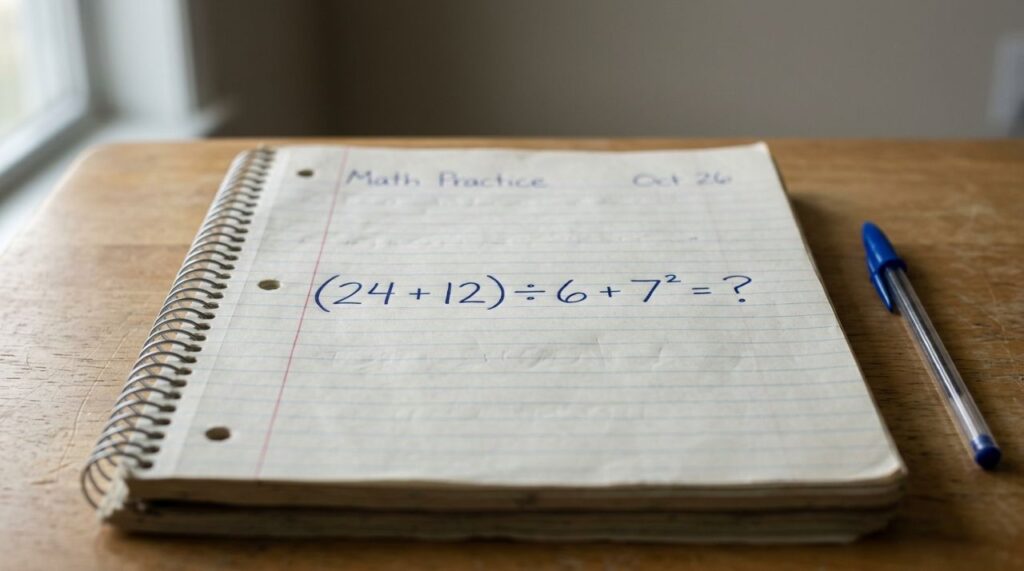 Math Practice Oct 26
(24 + 12) ÷ 6 + 7² = ?